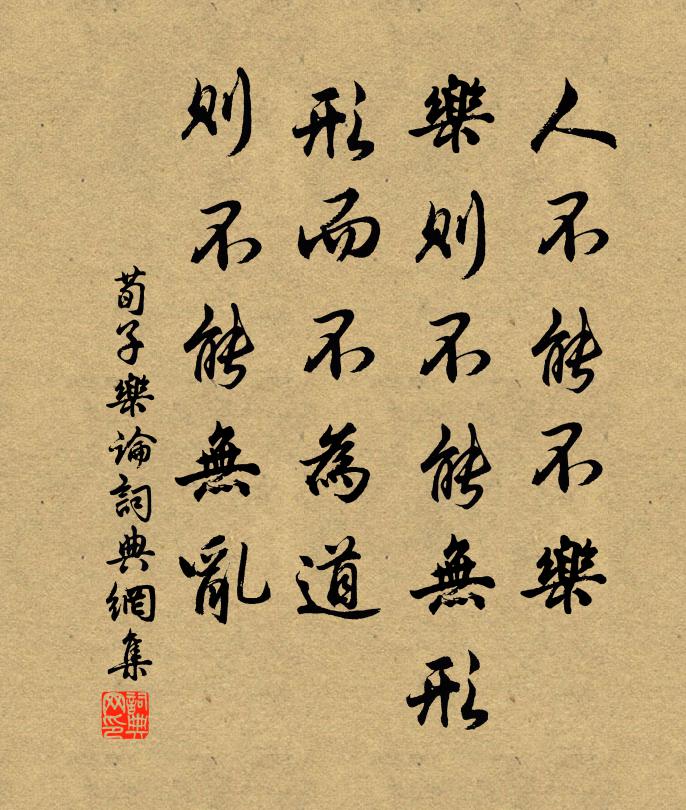 人不能不樂
樂則不能無形
形而不為道
則不能無亂
荀子樂論詞典網集
詞典网印